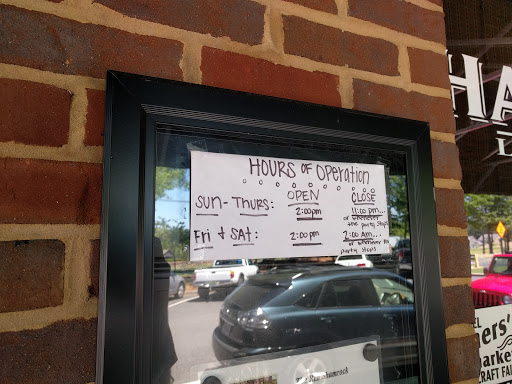 HOURS OF Operation
OPEN CLOSE
SUN - THURS: 2:00pm 11:00 pm...
or whenever
the party stops
Fri & SAt: 2:00 pm 2:00 Am...
or whenever the
party stops
HA
ers'
arke
RAFT FAI
The Rue Shamrock